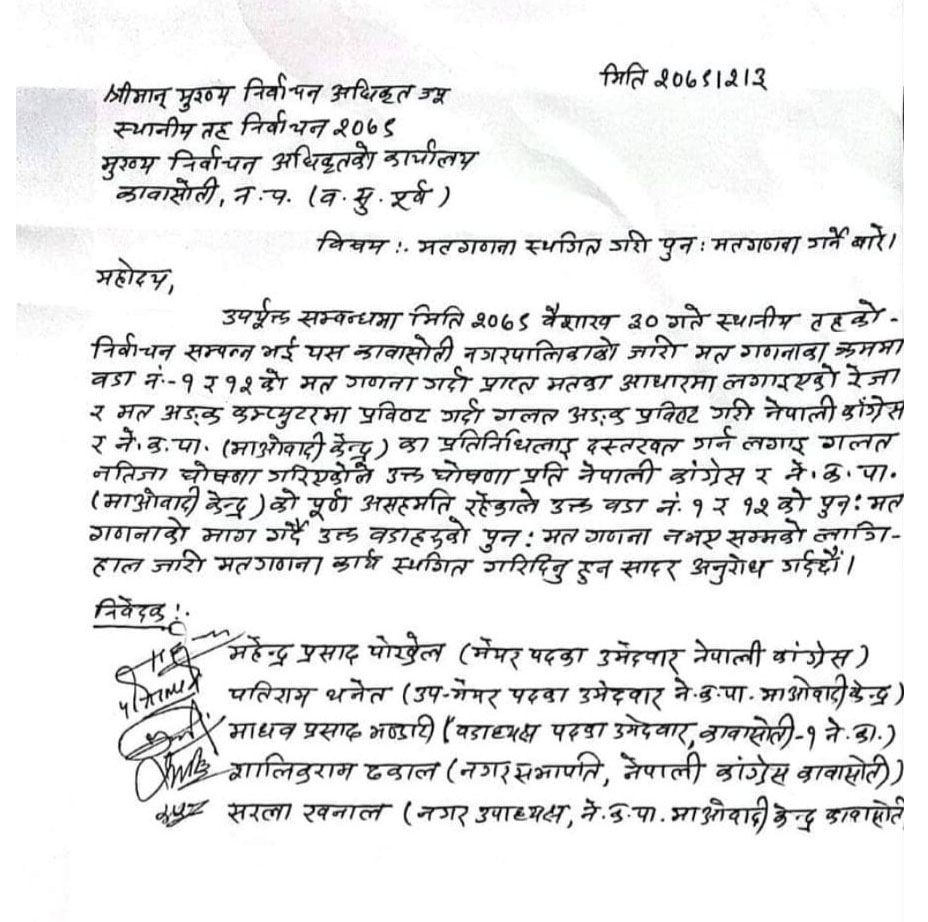 मिति २०७९।२।३
श्रीमान् मुख्य निर्वाचन अधिकृत ज्यू
स्थानीय तह निर्वाचन २०७९
मुख्य निर्वाचन अधिकृतको कार्यालय
कावासोती, न.पा. (व.सु.पूर्व)
विषय :. मतगणना स्थगित गरी पुन: मतगणना गर्ने बारे।
महोदय,
उपर्युक्त सम्बन्धमा मिति २०७९ वैशाख ३० गते स्थानीय तहको-
निर्वाचन सम्पन्न भई यस कावासोती नगरपालिकाको जारी मत गणनाका क्रममा
वडा नं.-१ र १२ को मत गणना गर्दा प्राप्त मतका आधारमा लगाइएको रेजा
र मत अङ्क कम्प्युटरमा प्रविष्ट गर्दा गलत अङ्क प्रविष्ट गरी नेपाली कांग्रेस
र ने.क.पा. (माओवादी केन्द्र) का प्रतिनिधिलाइ दस्तखत गर्न लगाइ गलत
नतिजा घोषणा गरिएकोले उक्त घोषणा प्रति नेपाली कांग्रेस र ने.क.पा.
(माओवादी केन्द्र) को पूर्ण असहमति रहेकाले उक्त वडा नं. १ र १२ को पुन: मत
गणनाको माग गर्दै उक्त वडाहरुको पुन: मत गणना नभए सम्मको लागि-
हाल जारी मतगणना कार्य स्थगित गरिदिनु हुन सादर अनुरोध गर्दछौं।
निवेदक :.
महेन्द्र प्रसाद पोखरेल (मेयर पदका उमेदवार नेपाली कांग्रेस)
पतिराम थनेत (उप-मेयर पदका उमेदवार ने.क.पा. माओवादी केन्द्र)
माधव प्रसाद भण्डारी (वडाध्यक्ष पदका उमेदवार, कावासोती-१ ने.का.)
शालिकराम ढकाल (नगर सभापति, नेपाली कांग्रेस कावासोती)
सरला खनाल (नगर उपाध्यक्ष, ने.क.पा. माओवादी केन्द्र कावासोती